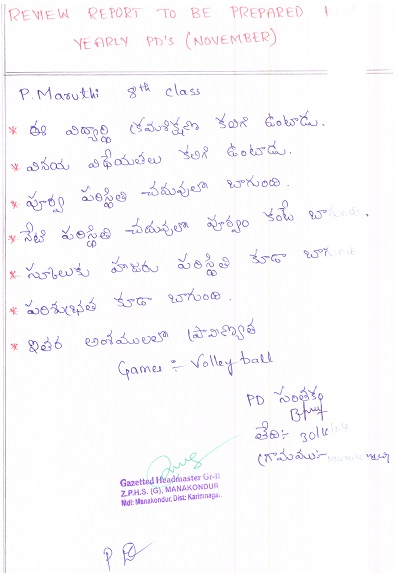 REVIEW REPORT TO BE PREPARED
YEARLY PD'S (NOVEMBER)
P. Maruthi 8th class
* ఈ విద్యార్థి క్రమశిక్షణ కలిగి ఉంటాడు.
* వినయ విధేయతలు కలిగి ఉంటాడు.
* పూర్వ పరిస్థితి చదువులో బాగుంది.
* నేటి పరిస్థితి చదువులో పూర్వం కంటే బాగుంది.
* స్కూలుకు హాజరు పరిస్థితి కూడా
* పరిశుభ్రత కూడా బాగుంది.
* ఇతర అంశములలో ప్రావిణ్యత
Games :- Volley ball
PD సంతకం
తేది:- 30/
గ్రామము:-
Gazetted Headmaster Gr-II
Z.P.H.S. (G), MANAKONDUR
Mdl: Manakondur, Dist: Karimnagar.
PD